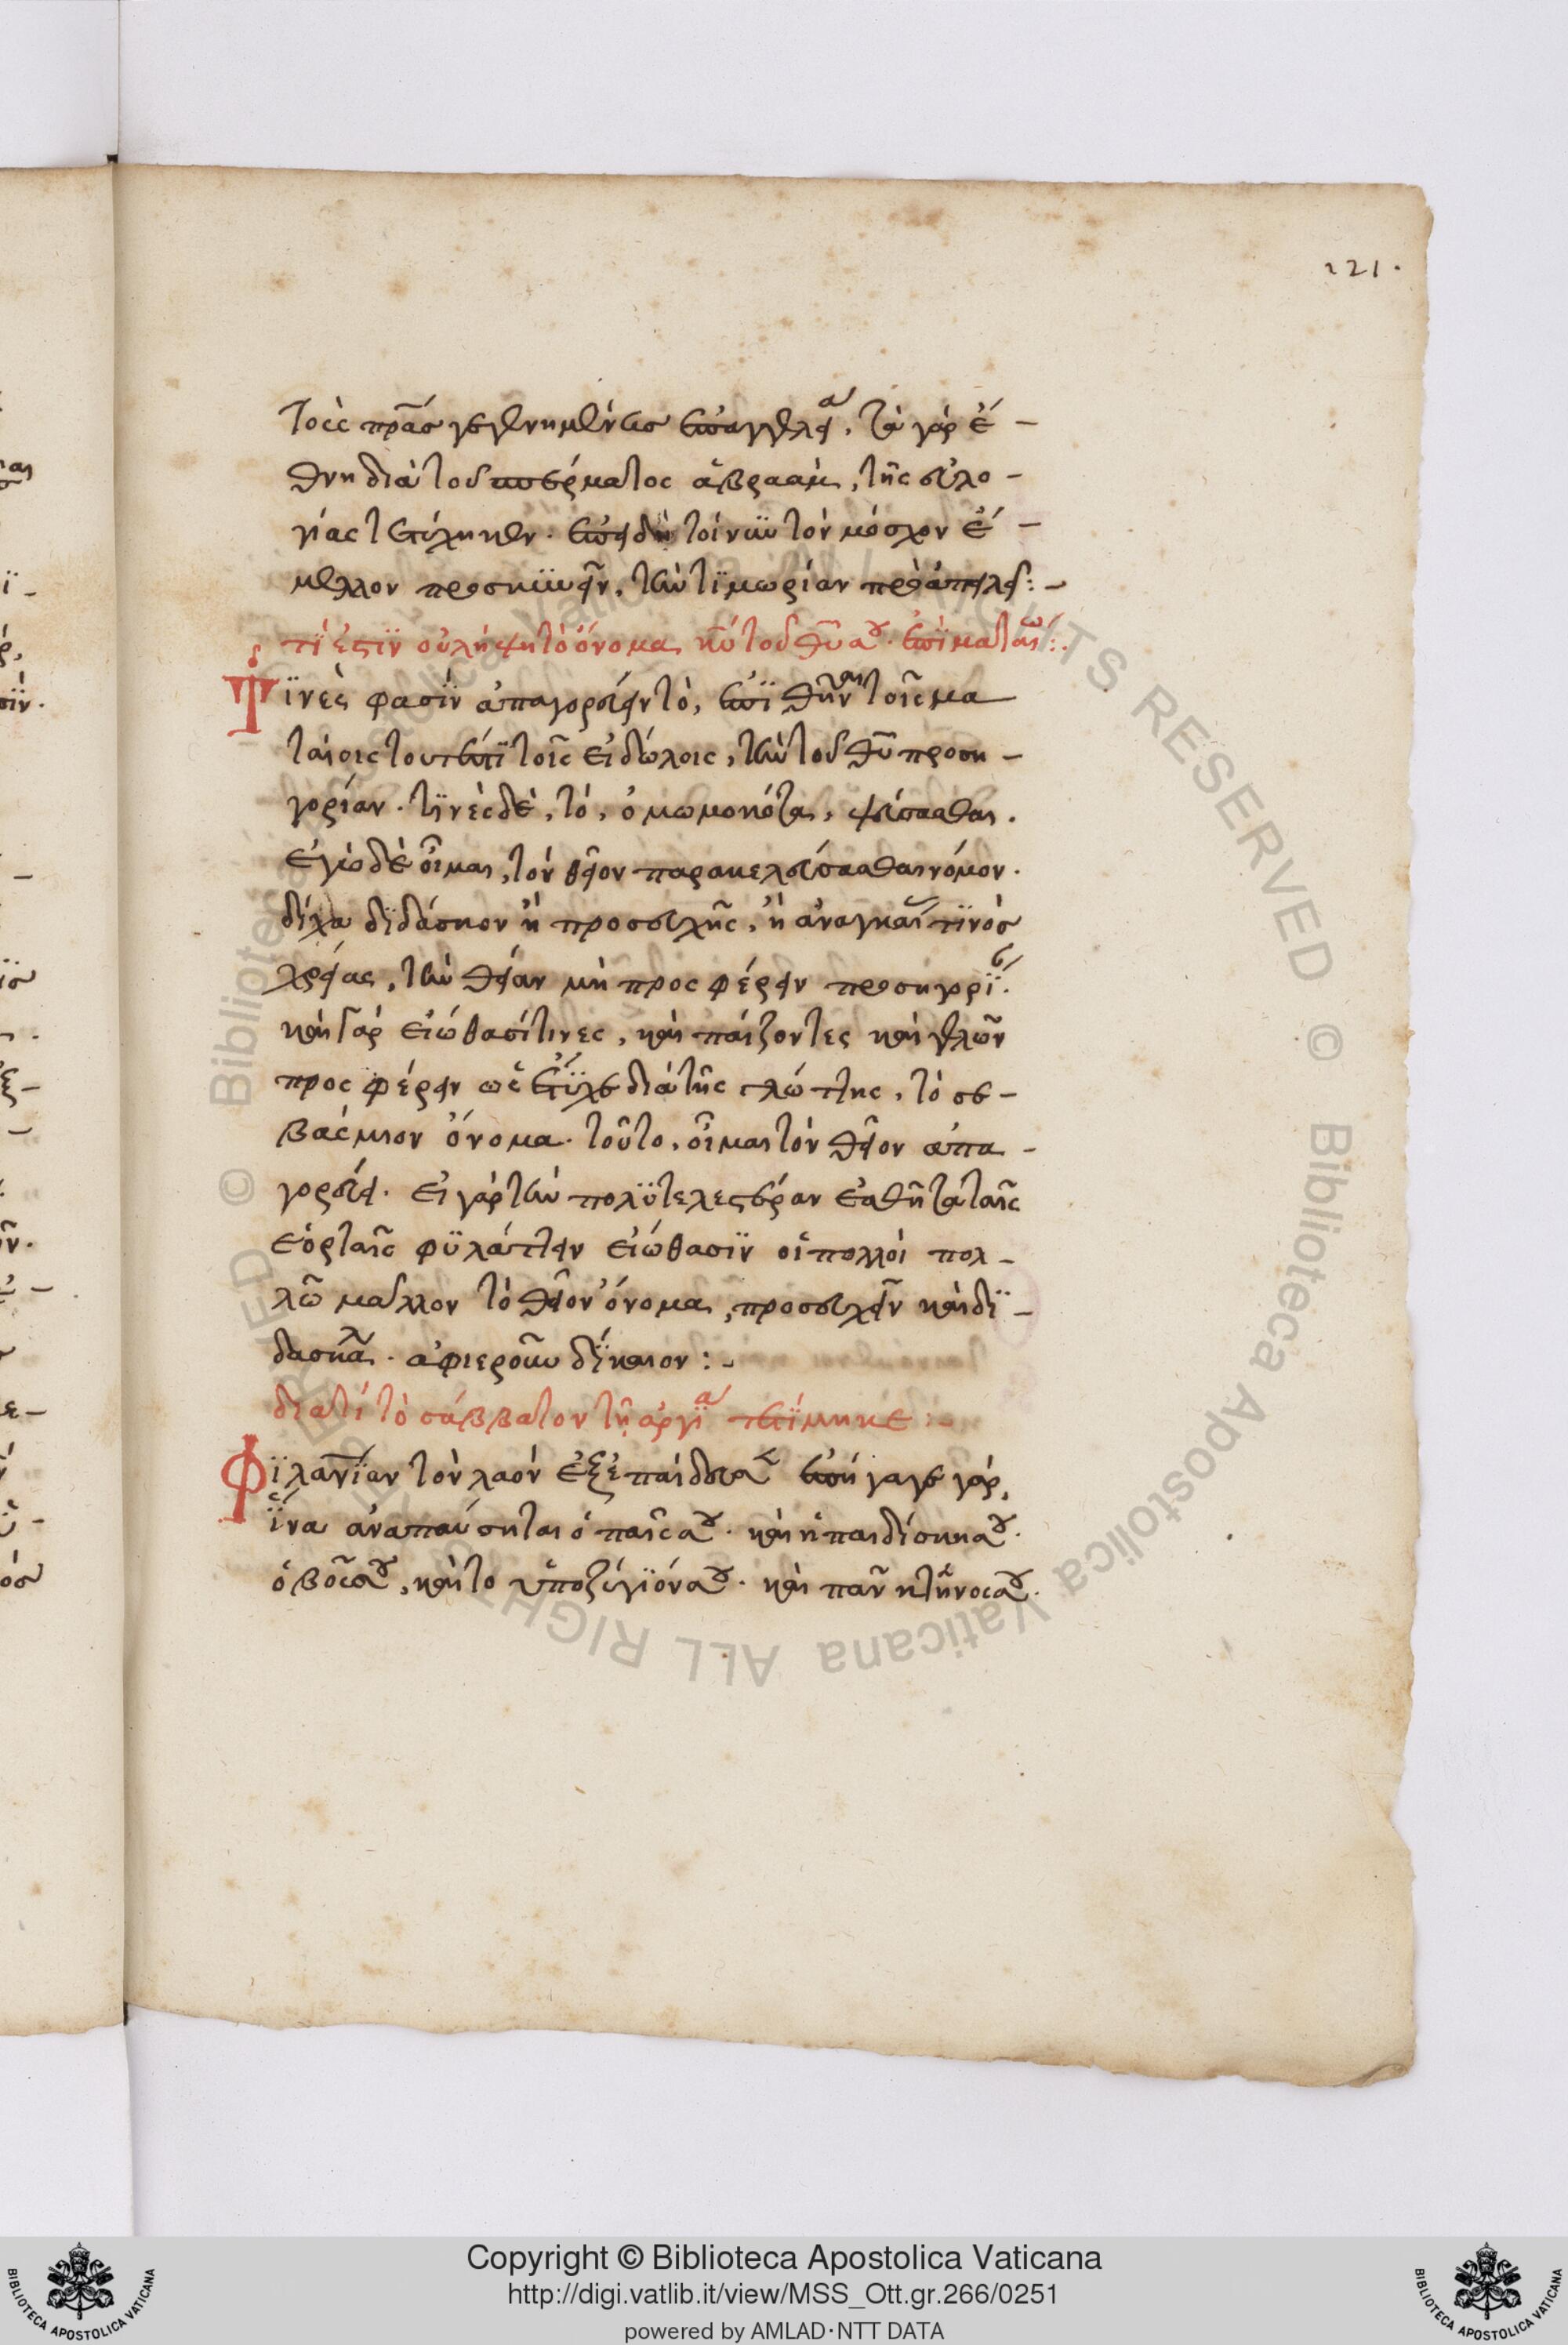 221.
τοὺς πρ̅ας γεγενημένας ἐπαγγελίας, τὰ γὰρ ἔ-
θνη διὰ τοῦ σπέρματος ἀβραὰμ, τῆς εὐλο-
γίας τετύχηκεν. ἐπειδὴ τοίνυν τὸν μόσχον ἔ-
μελλον προσκυνεῖν, τὴν τϊμωρίαν προηπείλει:-
τί ἐστιν οὐ λήψη τὸ ὄνομα κ̅υ τοῦ θ̅υ σου. ἐπὶ ματαίω:.
Τϊνές φασϊν ἀπαγορεύειν τὸ, ἐπϊ θεῖναι τοῖς μα
ταίοις τουτέστϊ τοῖς εἰδώλοις, τὴν τοῦ θ̅υ προση-
γορίαν. τϊνὲς δὲ, τὸ, ὀμωμοκότα, ψεύσασθαι.
ἐγὼ δὲ οἶμαι, τὸν θεῖον παρακελεύσασθαι νόμον.
δίχα δϊδάσκον ἢ προσευχῆς, ἢ ἀναγκαίας τϊνὸς
χρείας, τὴν θείαν μὴ προσφέρειν προσηγορϊ.
καὶ γὰρ εἰώθασί τινες, καὶ παίζοντες καὶ γελῶν
προσφέρειν ὡς ἔτϋχε διὰ τῆς γλώττης, τὸ σε-
βάσμιον ὄνομα. τοῦτο, οἶμαι τὸν θεῖον ἀπα-
γορεύει. εἰ γὰρ τὴν πολϋτελεστέραν ἐσθῆτα ταῖς
ἑορταῖς φϋλάττειν εἰώθασϊν οἱ πολλοὶ πολ-
λῶ μᾶλλον τὸ θεῖον ὄνομα, προσευχεῖν καὶ δϊ-
δασκαλ. ἀφιεροῦν δίκαιον:-
διατί τὸ σάββατον τῆ ἀργία τετϊμηκε:-
Φϊλαν̅ϊαν τὸν λαὸν ἐξεπαίδευσεν ἐπήγαγε γὰρ,
ἵνα ἀναπαύσηται ὁ παῖς σου. καὶ ἡ παιδίσκη σου.
ὁ βοῦς σου, καὶ τὸ ὑποζύγϊόν σου. καὶ πᾶν κτῆνος σου.
Copyright © Biblioteca Apostolica Vaticana
http://digi.vatlib.it/view/MSS_Ott.gr.266/0251
powered by AMLAD·NTT DATA